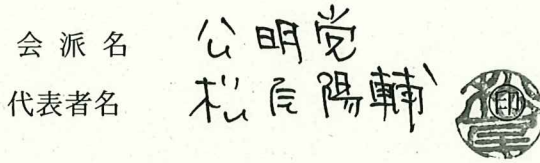 会派名 公明党
代表者名 松尾陽輔 ㊞